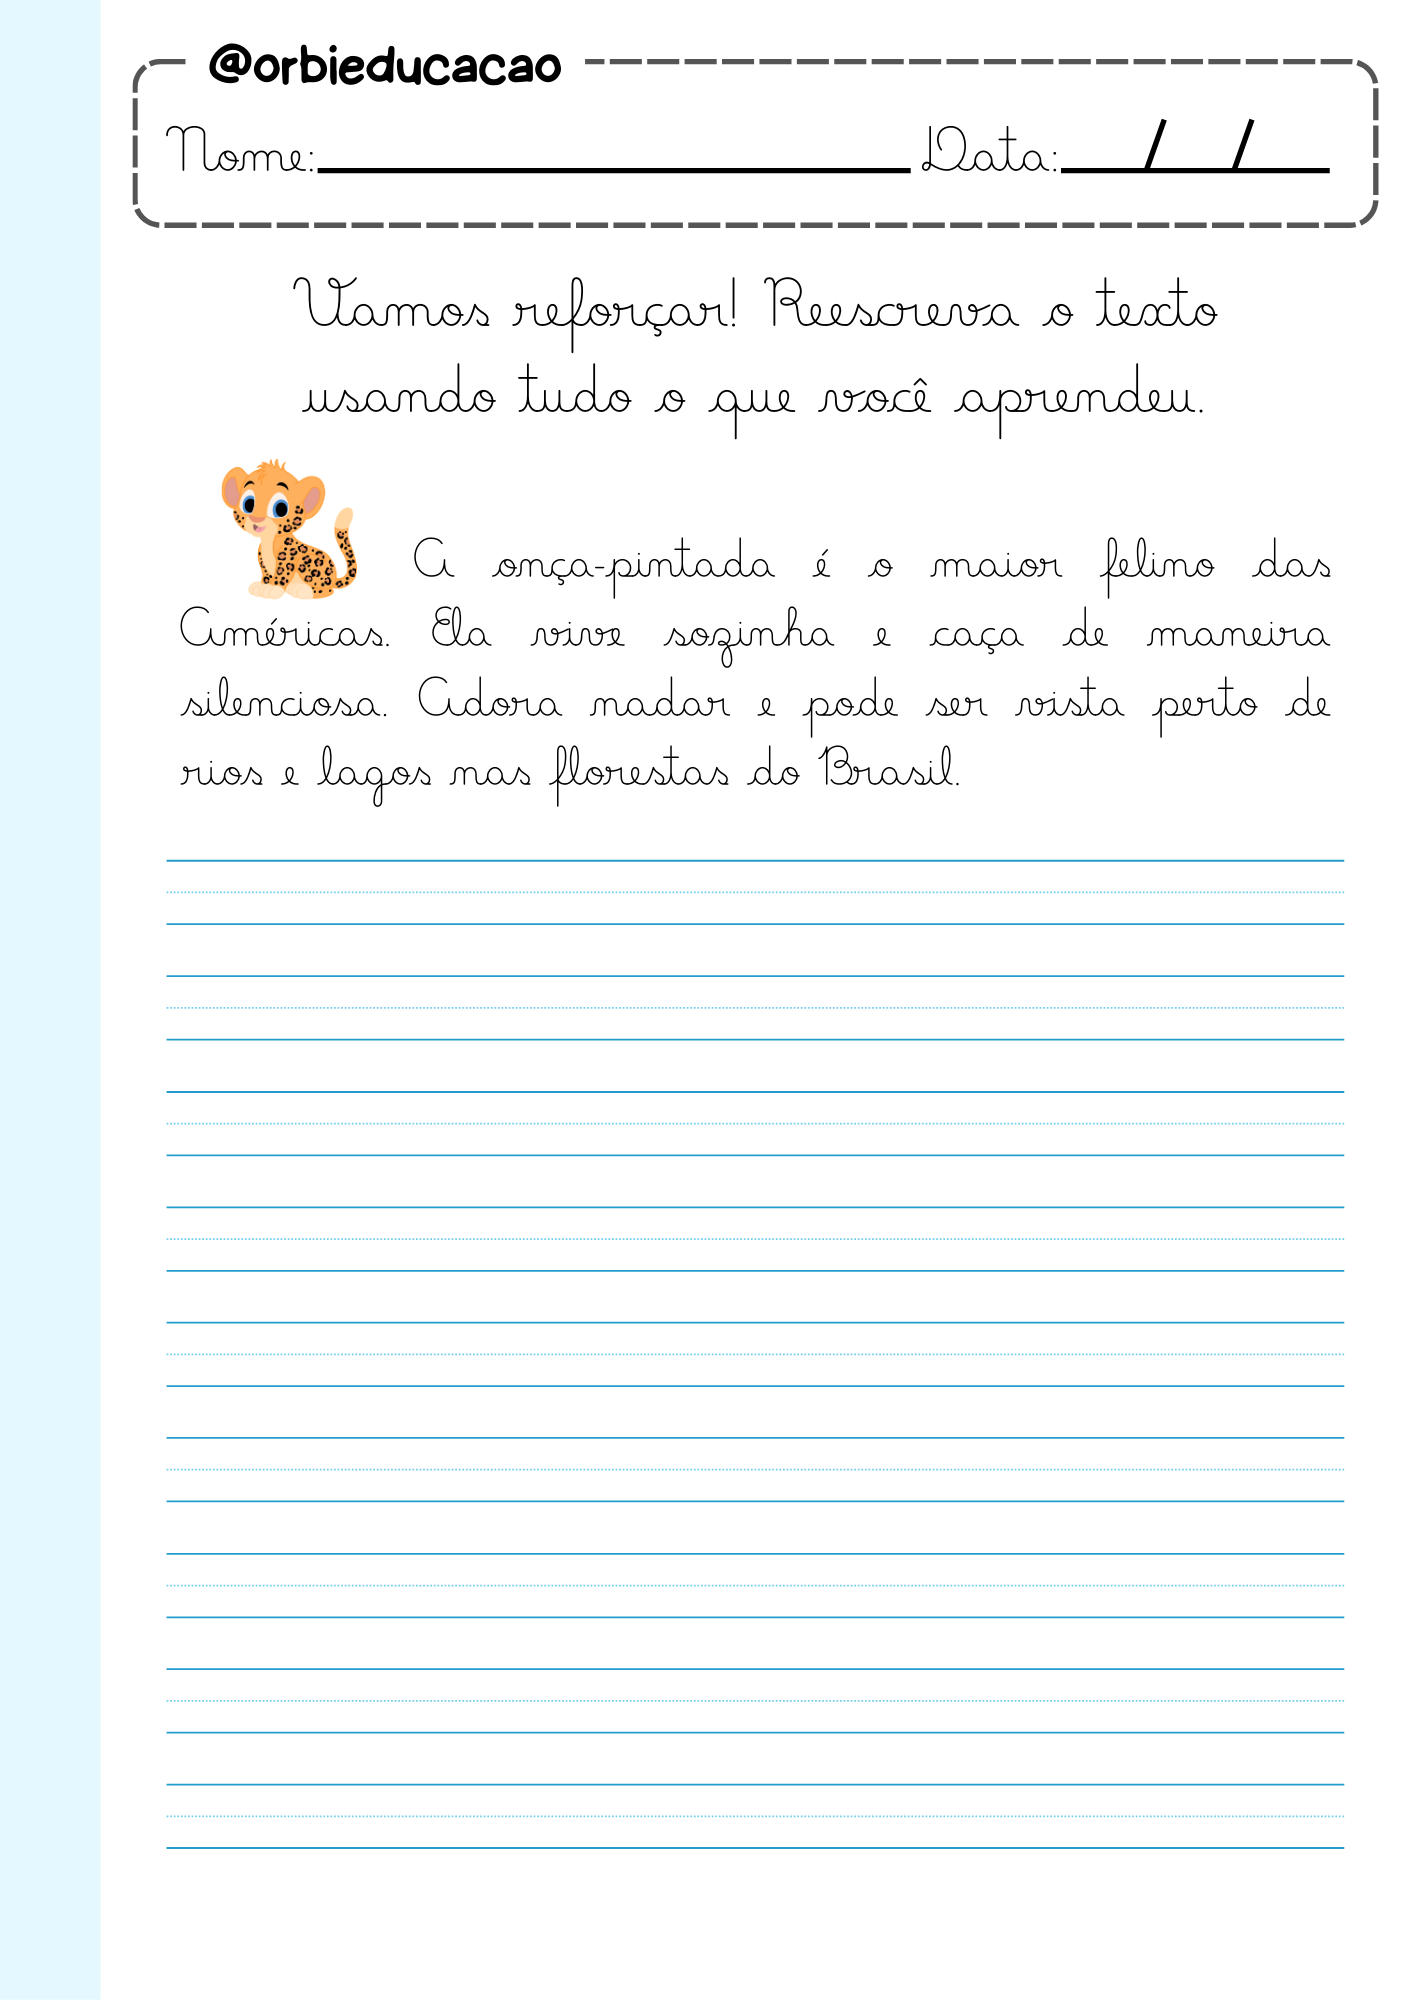 @orbieducacao
Nome: Data: / /
Vamos reforçar! Reescreva o texto
usando tudo o que você aprendeu.
A onça-pintada é o maior felino das
Américas. Ela vive sozinha e caça de maneira
silenciosa. Adora nadar e pode ser vista perto de
rios e lagos nas florestas do Brasil.